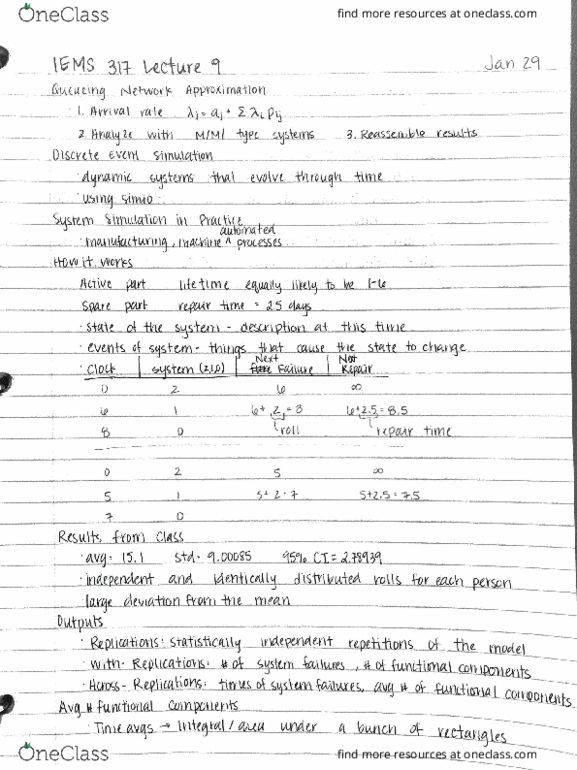 OneClass
find more resources at oneclass.com
IEMS 317 Lecture 9
Jan 29
Queueing Network Approximation
1. Arrival rate λj = aj + Σ λi Pij
2. Analyze with M/M/ type systems 3. Reassemble results
Discrete Event Simulation
· dynamic systems that evolve through time
· using simio
System Simulation in Practice
automated
· manufacturing, machine ^ processes
How it works
Active part lifetime equally likely to be 1-6
Spare part repair time = 2.5 days
· state of the system - description at this time
· events of system - things that cause the state to change
Next Nxt
· Clock system (2,1,0) Failure Repair
0 2 6 ∞
6 1 6+ 2 = 8 6+2.5 = 8.5
8 0 roll repair time
0 2 5 ∞
5 1 5+ 2 = 7 5+2.5 = 7.5
7 0
Results from Class
· avg = 15.1 std = 9.00085 95% CI = 2.78939
· independent and identically distributed rolls for each person
large deviation from the mean
Outputs
· Replications: statistically independent repetitions of the model
· With- Replications: # of system failures, # of functional components
· Across- Replications: times of system failures, avg # of functional components
Avg # functional components
· Time avgs → Integral / area under a bunch of rectangles
OneClass
find more resources at oneclass.com